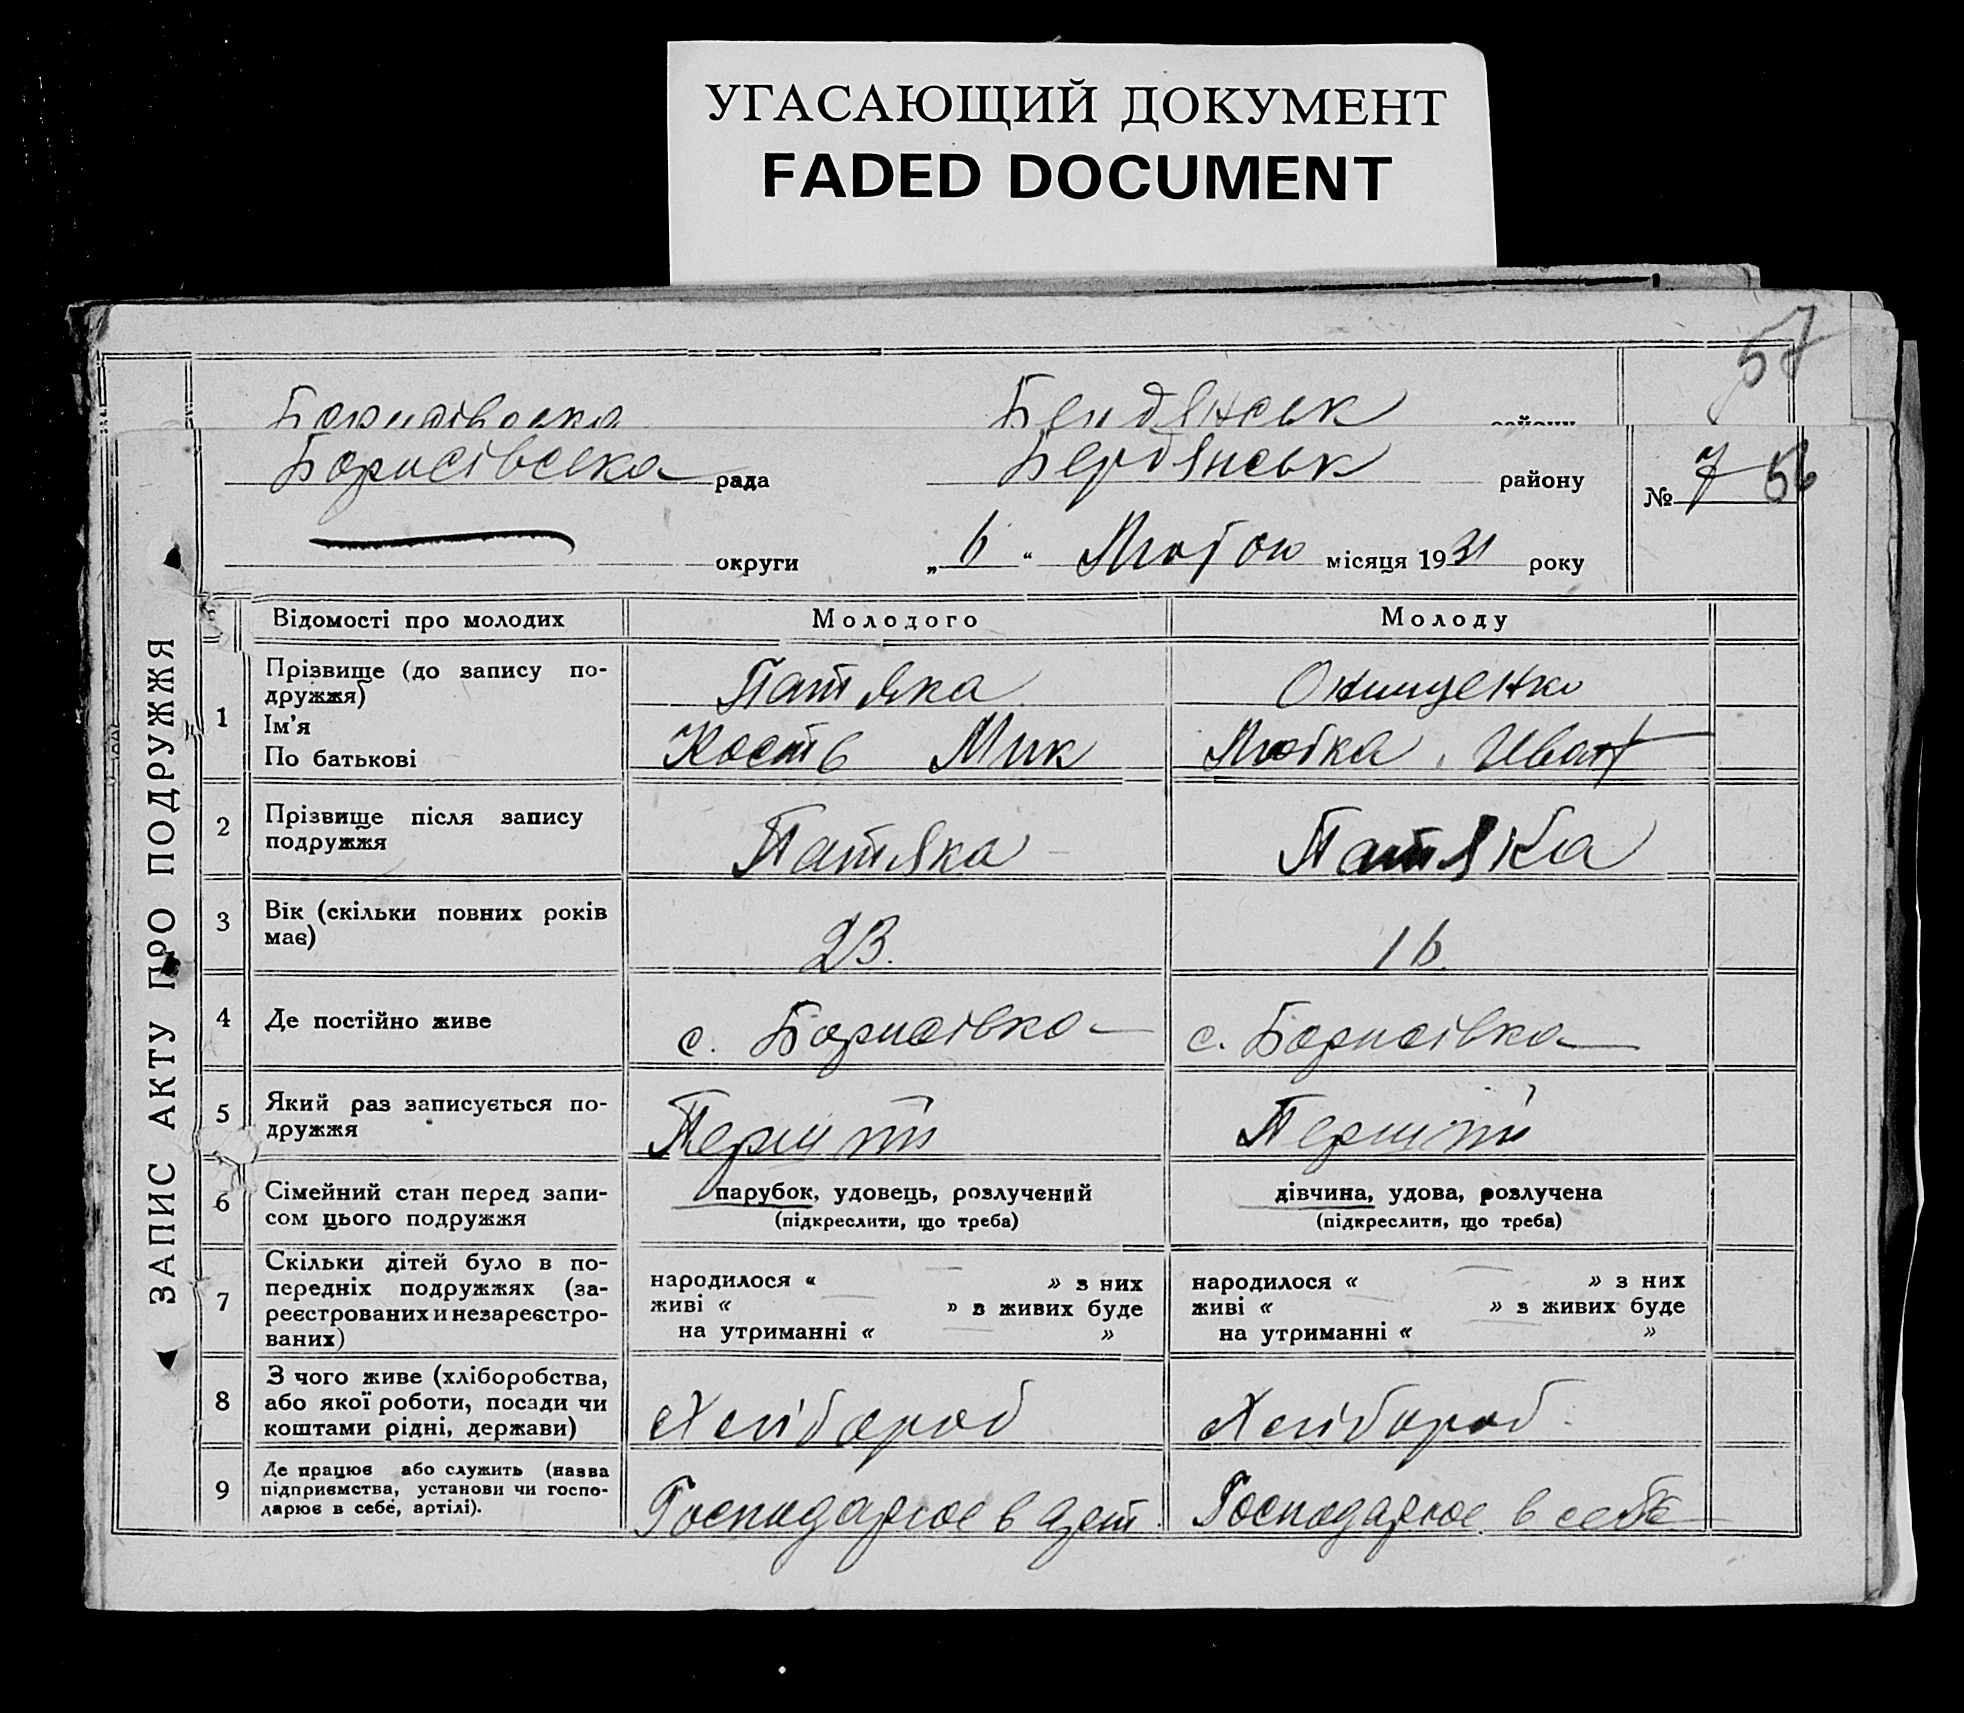 УГАСАЮЩИЙ ДОКУМЕНТ
FADED DOCUMENT
57
Борисівська Бердянськ району
Борисівська рада Бердянськ району № 7 56
округи „ 6 “ Лютою місяця 1931 року
ЗАПИС АКТУ ПРО ПОДРУЖЖЯ
Відомості про молодих Молодого Молоду
1 Прізвище (до запису по-
дружжя) Патяка Онищенко
Ім'я
По батькові Кость Мик Любка Иван
2 Прізвище після запису
подружжя Патяка Патяка
3 Вік (скільки повних років
має) 23. 16.
4 Де постійно живе с. Борисівка с. Борисівка
5 Який раз записується по-
дружжя Перший Перший
6 Сімейний стан перед запи-
сом цього подружжя
парубок, удовець, розлучений
(підкреслити, що треба)
дівчина, удова, розлучена
(підкреслити, що треба)
7 Скільки дітей було в по-
передніх подружжях (за-
реєстрованих и незареєстро-
ваних)
народилося « » з них
живі « » з живих буде
на утриманні « »
народилося « » з них
живі « » з живих буде
на утриманні « »
8 З чого живе (хліборобства,
або якої роботи, посади чи
коштами рідні, держави) Хлібороб Хлібороб
9 Де працює або служить (назва
підприємства, установи чи госпо-
дарює в себе, артілі).
Господарює в арт Господарює в себе